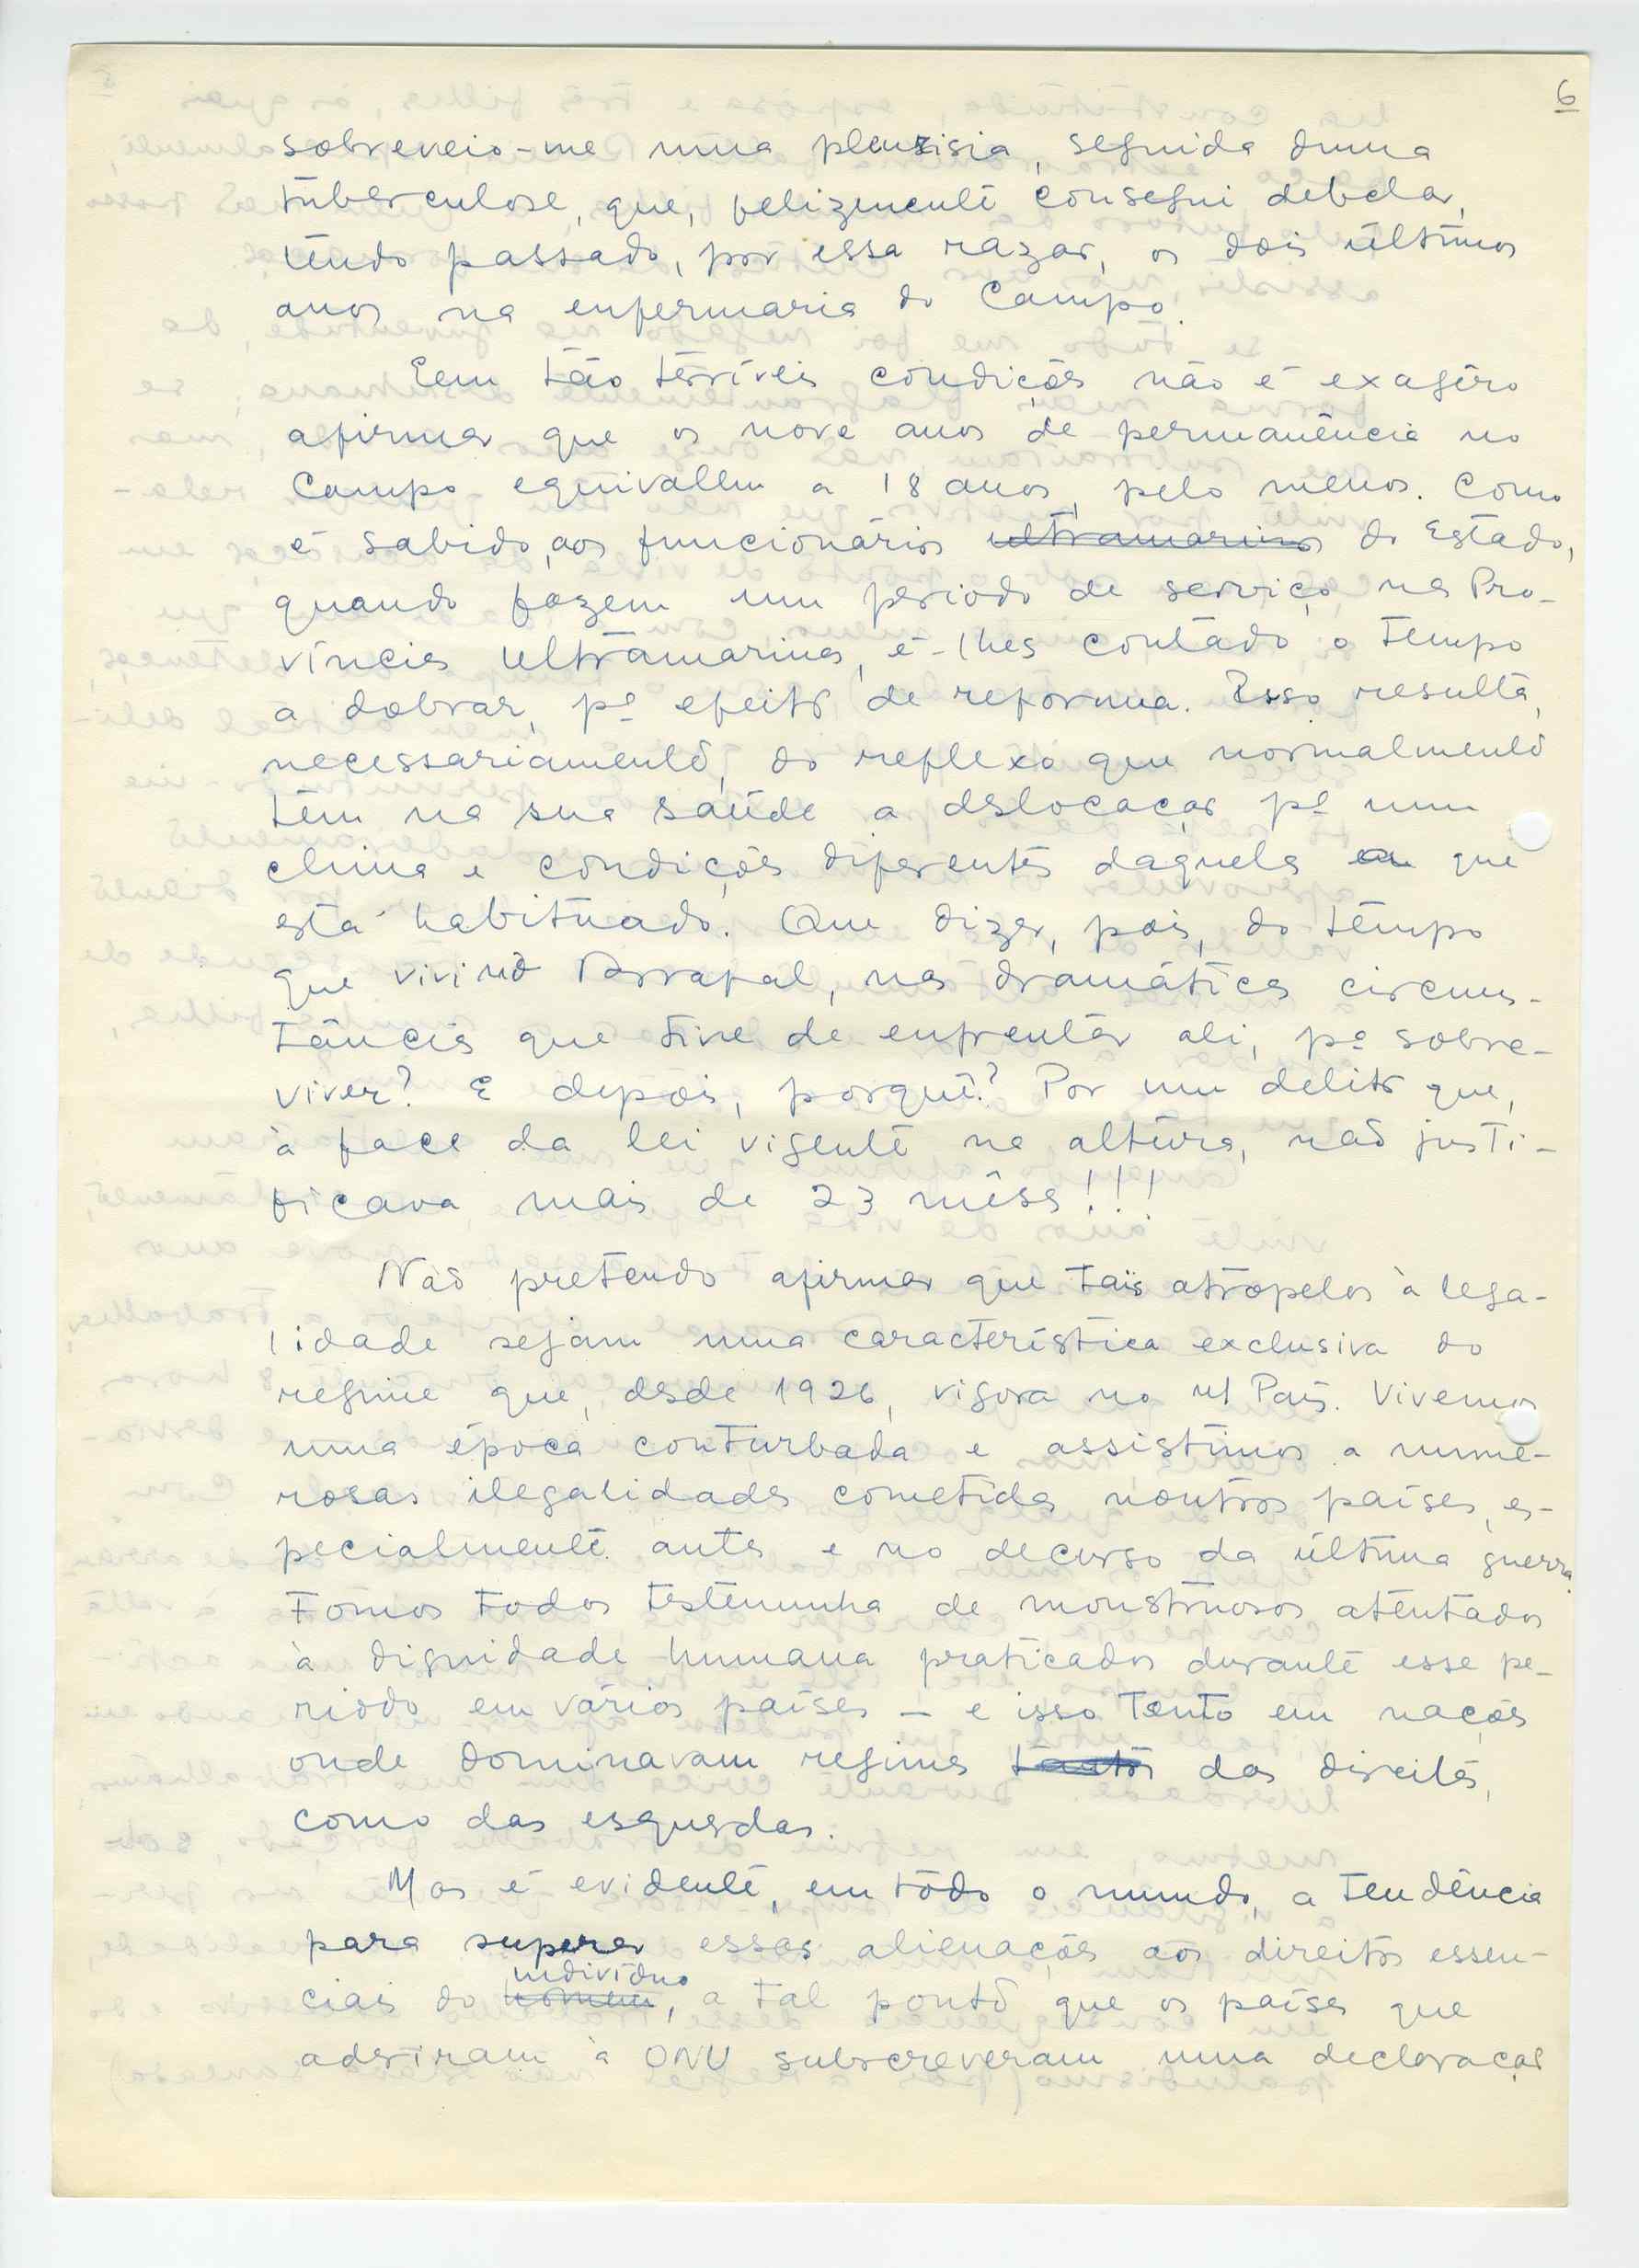 6
sobreveio-me uma pleurisia, seguida duma
tuberculose, que, felizmente consegui debelar,
tendo passado, por essa razão, os dois últimos
anos na enfermaria do Campo.
Em tão terríveis condições não é exagêro
afirmar que os nove anos de permanência no
Campo equivalem a 18 anos, pelo menos. Como
é sabido, aos funcionários ultramarinos do Estado,
quando fazem um período de serviço nas Pro-
víncias Ultramarinas, é-lhes contado o tempo
a dobrar, pª efeito de reforma. Isso resulta,
necessariamente, do reflexo que normalmente
têm na sua saúde a deslocação pª um
clima e condições diferentes daquelas a que
está habituado. Que dizer, pois, do tempo
que vivi no Tarrafal, nas dramáticas circuns-
tâncias que tive de enfrentar ali, pª sobre-
viver? E depois, porquê? Por um delito que,
à face da lei vigente na altura, não justi-
ficava mais de 23 mêses!!!
Não pretendo afirmar que tais atropelos à lega-
lidade sejam uma característica exclusiva do
regime que, desde 1926, vigora no n/ País. Vivemos
uma época conturbada e assistimos a nume-
rosas ilegalidades cometidas noutros países, es-
pecialmente antes e no decurso da última guerra.
Fomos todos testemunha de monstruosos atentados
à dignidade humana praticados durante esse pe-
riodo em vários países – e isso tanto em nações
onde dominavam regimes tanto das direitas,
como das esquerdas.
Mas é evidente, em todo o mundo, a tendência
para superar essas alienações aos direitos essen-
individuo
ciais do homem, a tal ponto que os países que
aderiram à ONU subscreveram uma declaração